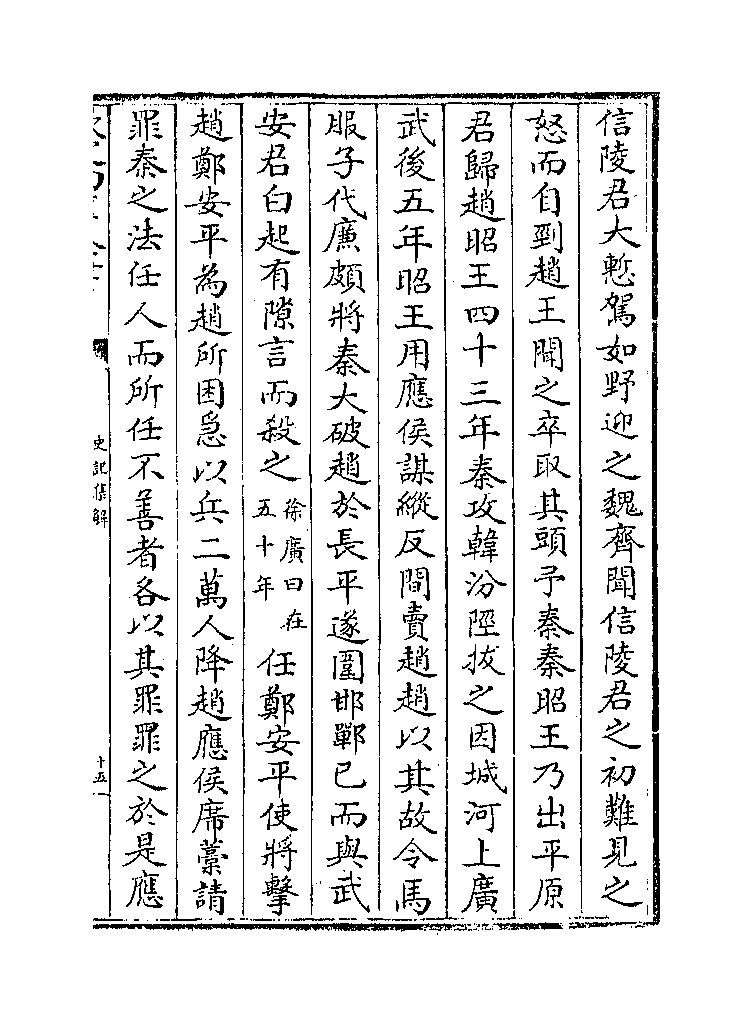 信陵君大慙駕如野迎之魏齊聞信陵君之初難見之
怒而自剄趙王聞之卒取其頭予秦秦昭王乃出平原
君歸趙昭王四十三年秦攻韓汾陘拔之因城河上廣
武後五年昭王用應侯謀縱反間賣趙趙以其故令馬
服子代廉頗將秦大破趙於長平遂圍邯鄲已而與武
安君白起有隙言而殺之徐廣曰在五十年任鄭安平使將擊
趙鄭安平為趙所困急以兵二萬人降趙應侯席藁請
罪秦之法任人而所任不善者各以其罪罪之於是應
史記集解
十五